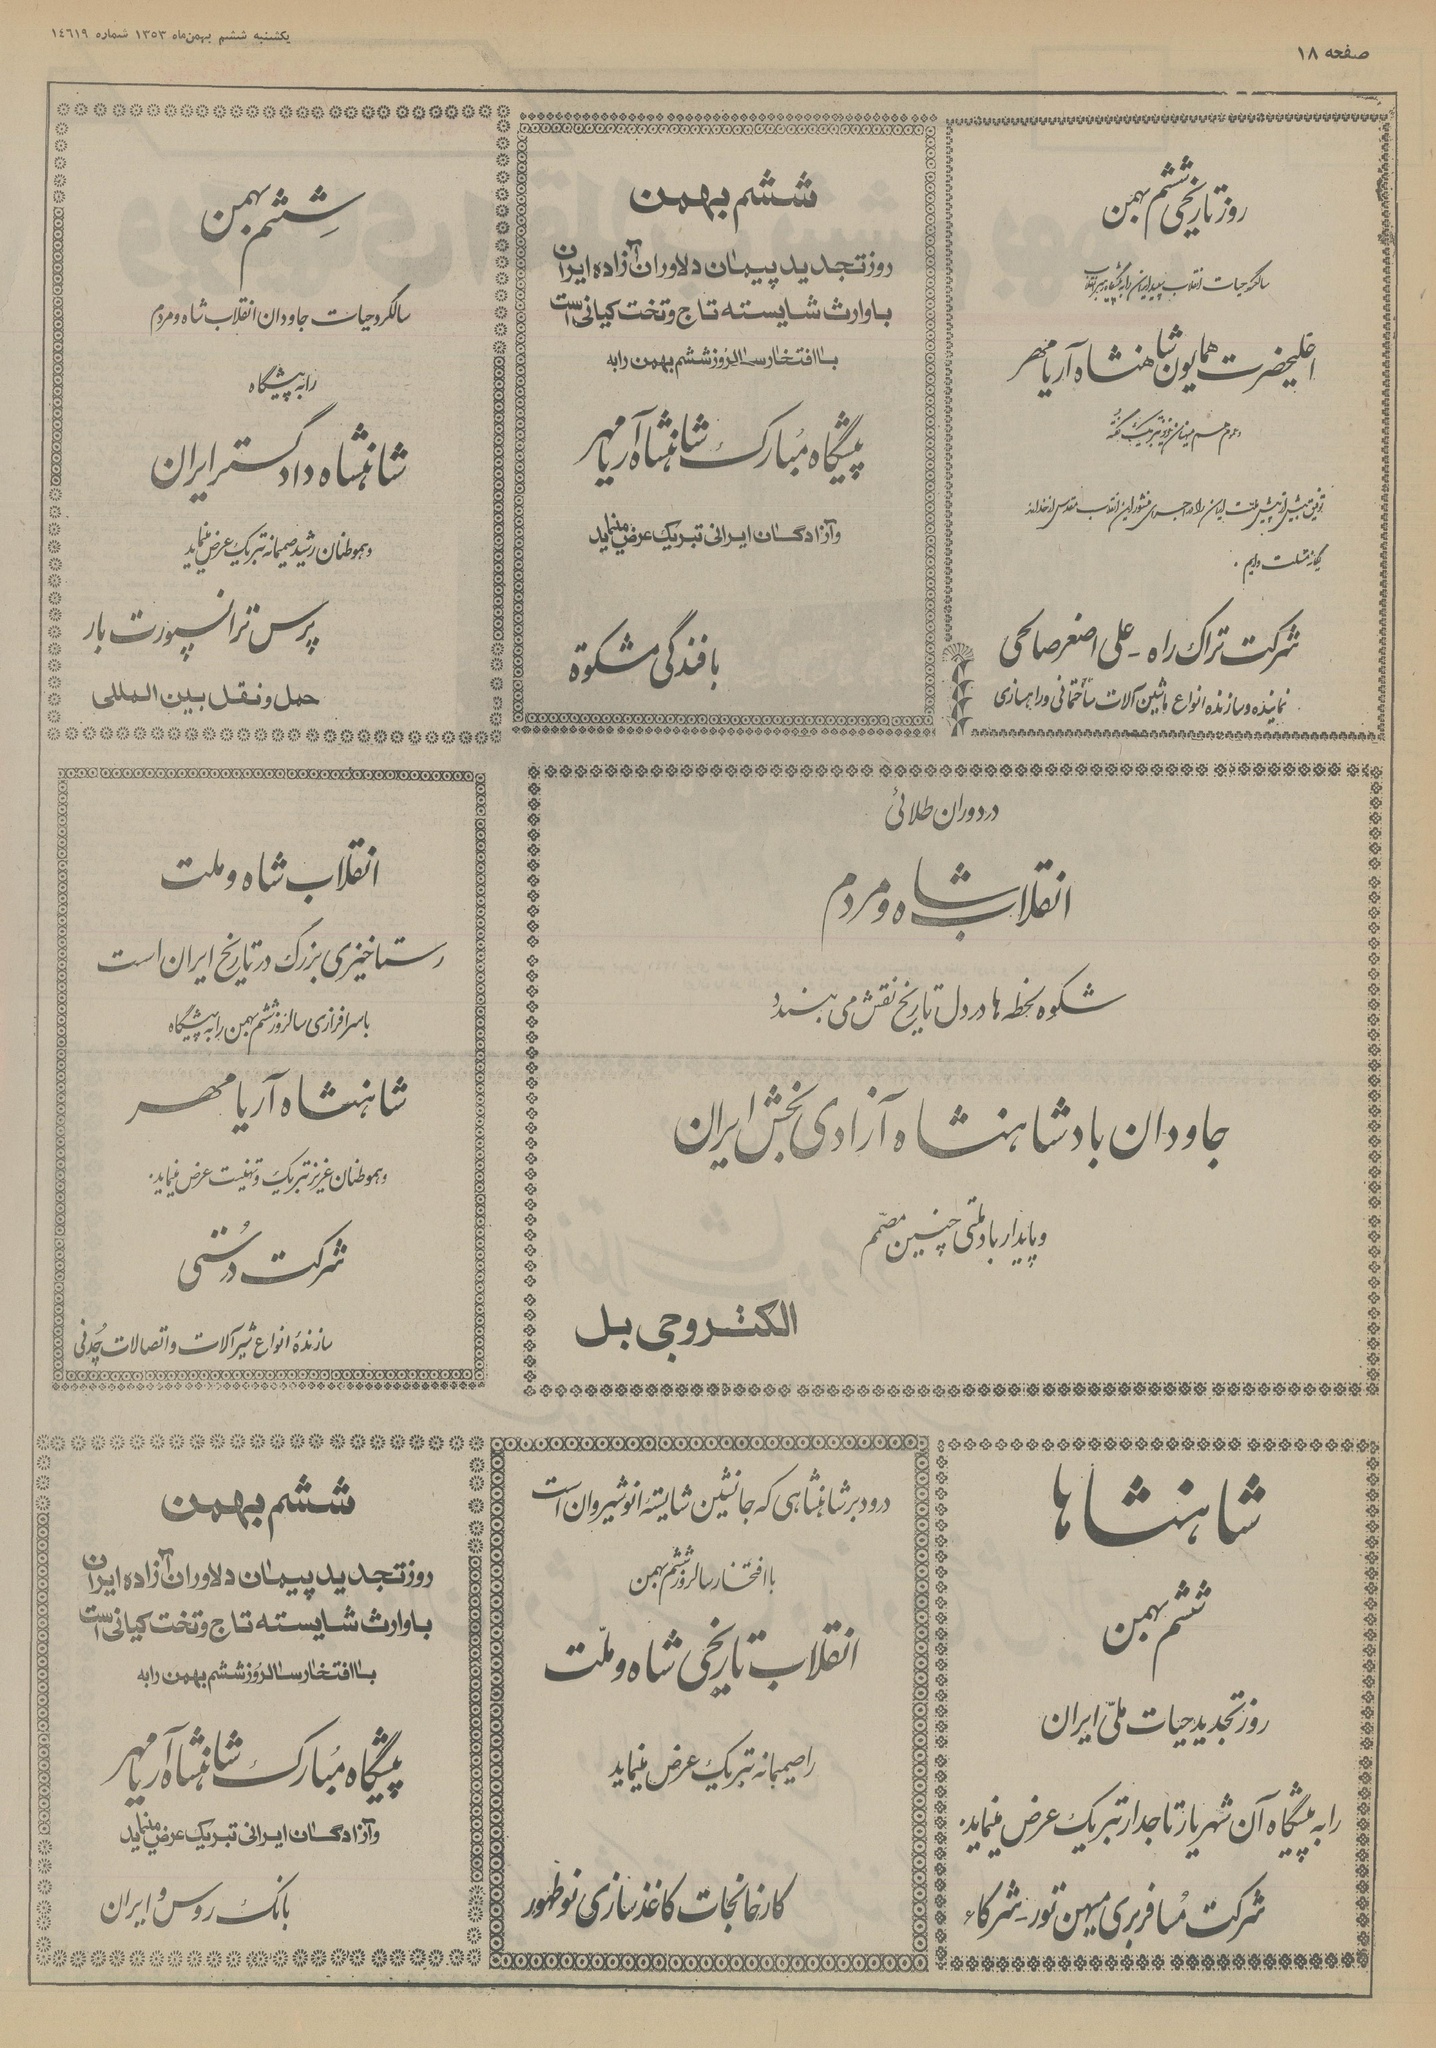 صفحه ۱۸
یکشنبه ششم بهمن‌ماه ۱۳۵۳ شماره ۱۴۶۱۹
روز تاریخی ششم بهمن
اعلیحضرت همایون شاهنشاه آریامهر
شرکت تراک راه - علی اصغر صالحی
نماینده و سازنده انواع ماشین آلات ساختمانی و راهسازی
ششم بهمن
روز تجدید پیمان دلاوران آزاده ایران
با وارث شایسته تاج و تخت کیانی است
با افتخار سالروز ششم بهمن را به
پیشگاه مبارک شاهنشاه آریامهر
و آزادگان ایرانی تبریک عرض مینماید
بافندگی مشکوة
ششم بهمن
سالگرد حیات جاودان انقلاب شاه و مردم
را به پیشگاه
شاهنشاه دادگستر ایران
و هموطنان رشید صمیمانه تبریک عرض مینماید
پرس ترانسپورت بار
حمل و نقل بین المللی
در دوران طلائی
انقلاب شاه و مردم
شکوه لحظه ها در دل تاریخ نقش می بندد
جاودان باد شاهنشاه آزادی بخش ایران
و پایدار باد ملتی چنین مصمم
الکتروجی بل
انقلاب شاه و ملت
رستاخیزی بزرگ در تاریخ ایران است
با سرافرازی سالروز ششم بهمن را به پیشگاه
شاهنشاه آریامهر
و هموطنان عزیز تبریک و تهنیت عرض مینماید.
شرکت درستی
سازندهٔ انواع شیرآلات و اتصالات چدنی
شاهنشاها
ششم بهمن
روز تجدید حیات ملی ایران
را به پیشگاه آن شهریار تاجدار تبریک عرض مینماید.
شرکت مسافربری میهن تور - شرکاء
درود بر شاهنشاهی که جانشین شایستهٔ انوشیروان است
با افتخار سالروز ششم بهمن
انقلاب تاریخی شاه و ملت
را صمیمانه تبریک عرض مینماید
کارخانجات کاغذسازی نوظهور
ششم بهمن
روز تجدید پیمان دلاوران آزاده ایران
با وارث شایسته تاج و تخت کیانی است
با افتخار سالروز ششم بهمن را به
پیشگاه مبارک شاهنشاه آریامهر
و آزادگان ایرانی تبریک عرض مینماید
بانک روس و ایران